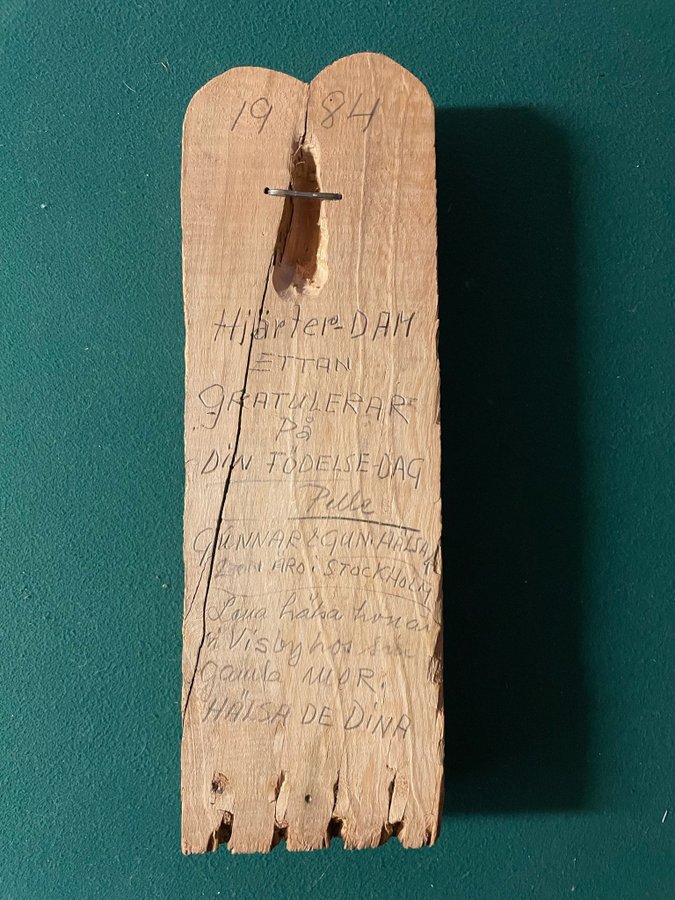 1984
Hjärter-DAM
ETTAN
GRATULERAR
På
DIN FÖDELSE-DAG
Pelle
GUNNAR & GUN. HÄLSA
ARO i STOCKHOLM
hälsa hon är
i Visby hos
gamla MOR.
HÄLSA DE DINA